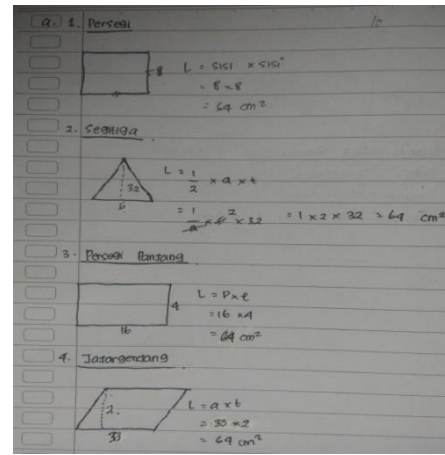 a. 1. Persegi
8
L = sisi x sisi
= 8 x 8
= 64 cm²
2. Segitiga
32
6
L = 1/2 x a x t
= 1/2 x 4² x 32 = 1 x 2 x 32 = 64 cm²
3. Persegi Panjang
4
16
L = P x l
= 16 x 4
= 64 cm²
4. Jajargenjang
2
33
L = a x t
= 33 x 2
= 64 cm²